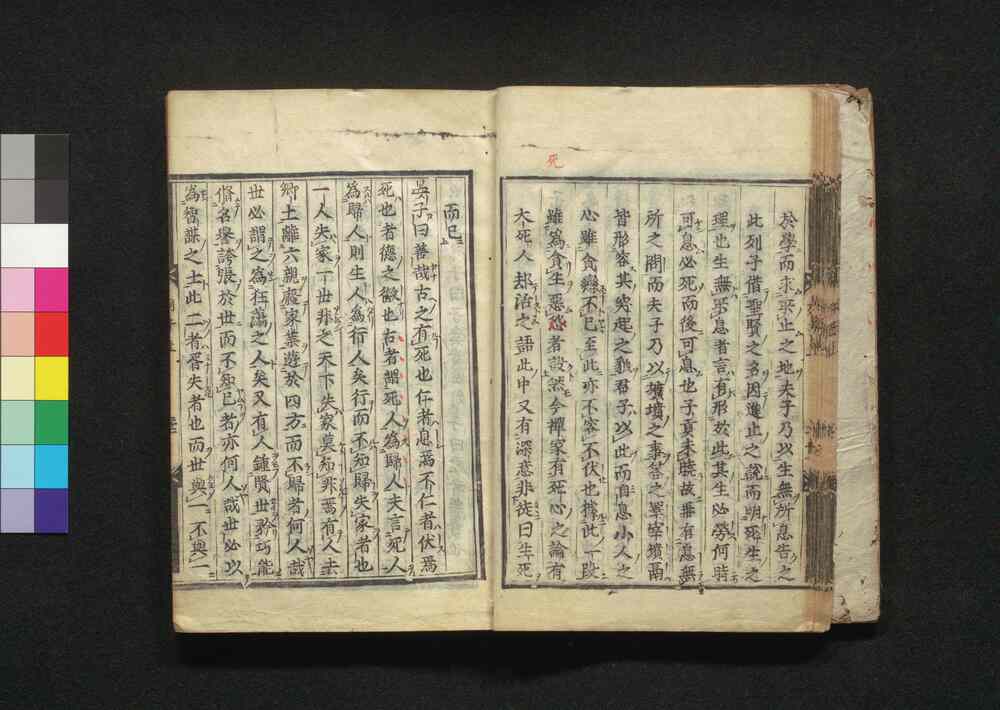 死
於學而求所止之地夫子乃以生無所息告之
此列子借聖賢之名因進止之說而明死生之
理也生無所息者言有形於此其生必勞何時
可息必死而後可息也子貢未曉故再有息無
所之問而夫子乃以壙墳之事答之睪宰墳鬲
皆形容其突起之貌君子以此而自息小人之
心雖貪戀不已至此亦不容不伏也據此一段
雖為貪生惡恐者設然今禪家有死心之論有
大死人却治之語此中又有深意非徒曰生死
而已
晏子曰善哉古之有死也仁者息焉不仁者伏焉
死也者德之徼也古者謂死人為歸人夫言死人
為歸人則生人為行人矣行而不知歸失家者也
一人失家一世非之天下失家莫知非焉有人去
鄉土離六親廢家業遊於四方而不歸者何人哉
世必謂之為狂蕩之人矣又有人鍾賢世矜巧能
脩名譽誇張於世而不知已者亦何人哉世必以
為智謀之士此二者胥失者也而世與一不與一